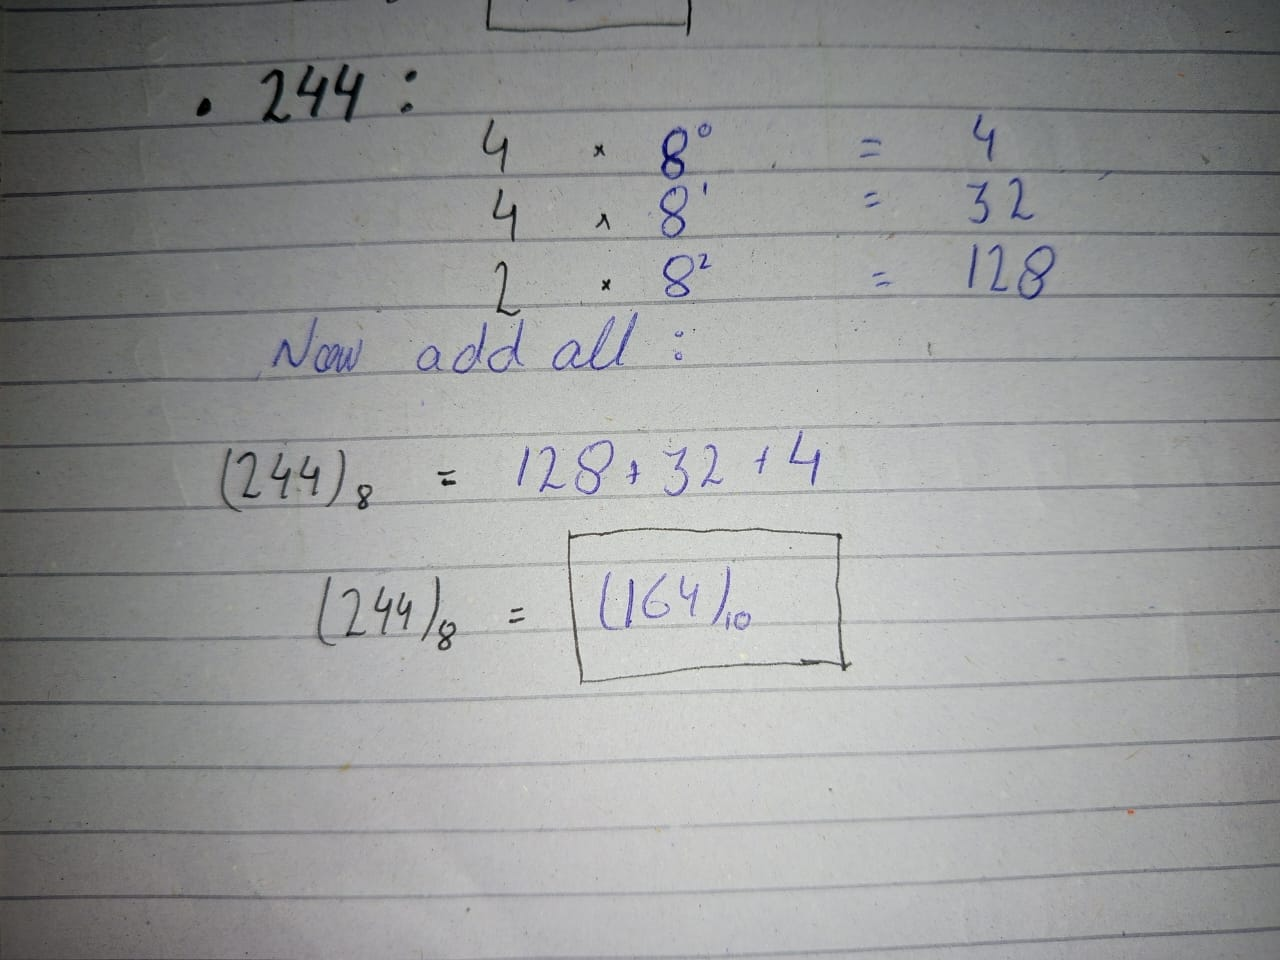 . 244 :
4 × 8⁰ = 4
4 × 8¹ = 32
2 × 8² = 128
Now add all :
(244)₈ = 128 + 32 + 4
(244)₈ = (164)₁₀